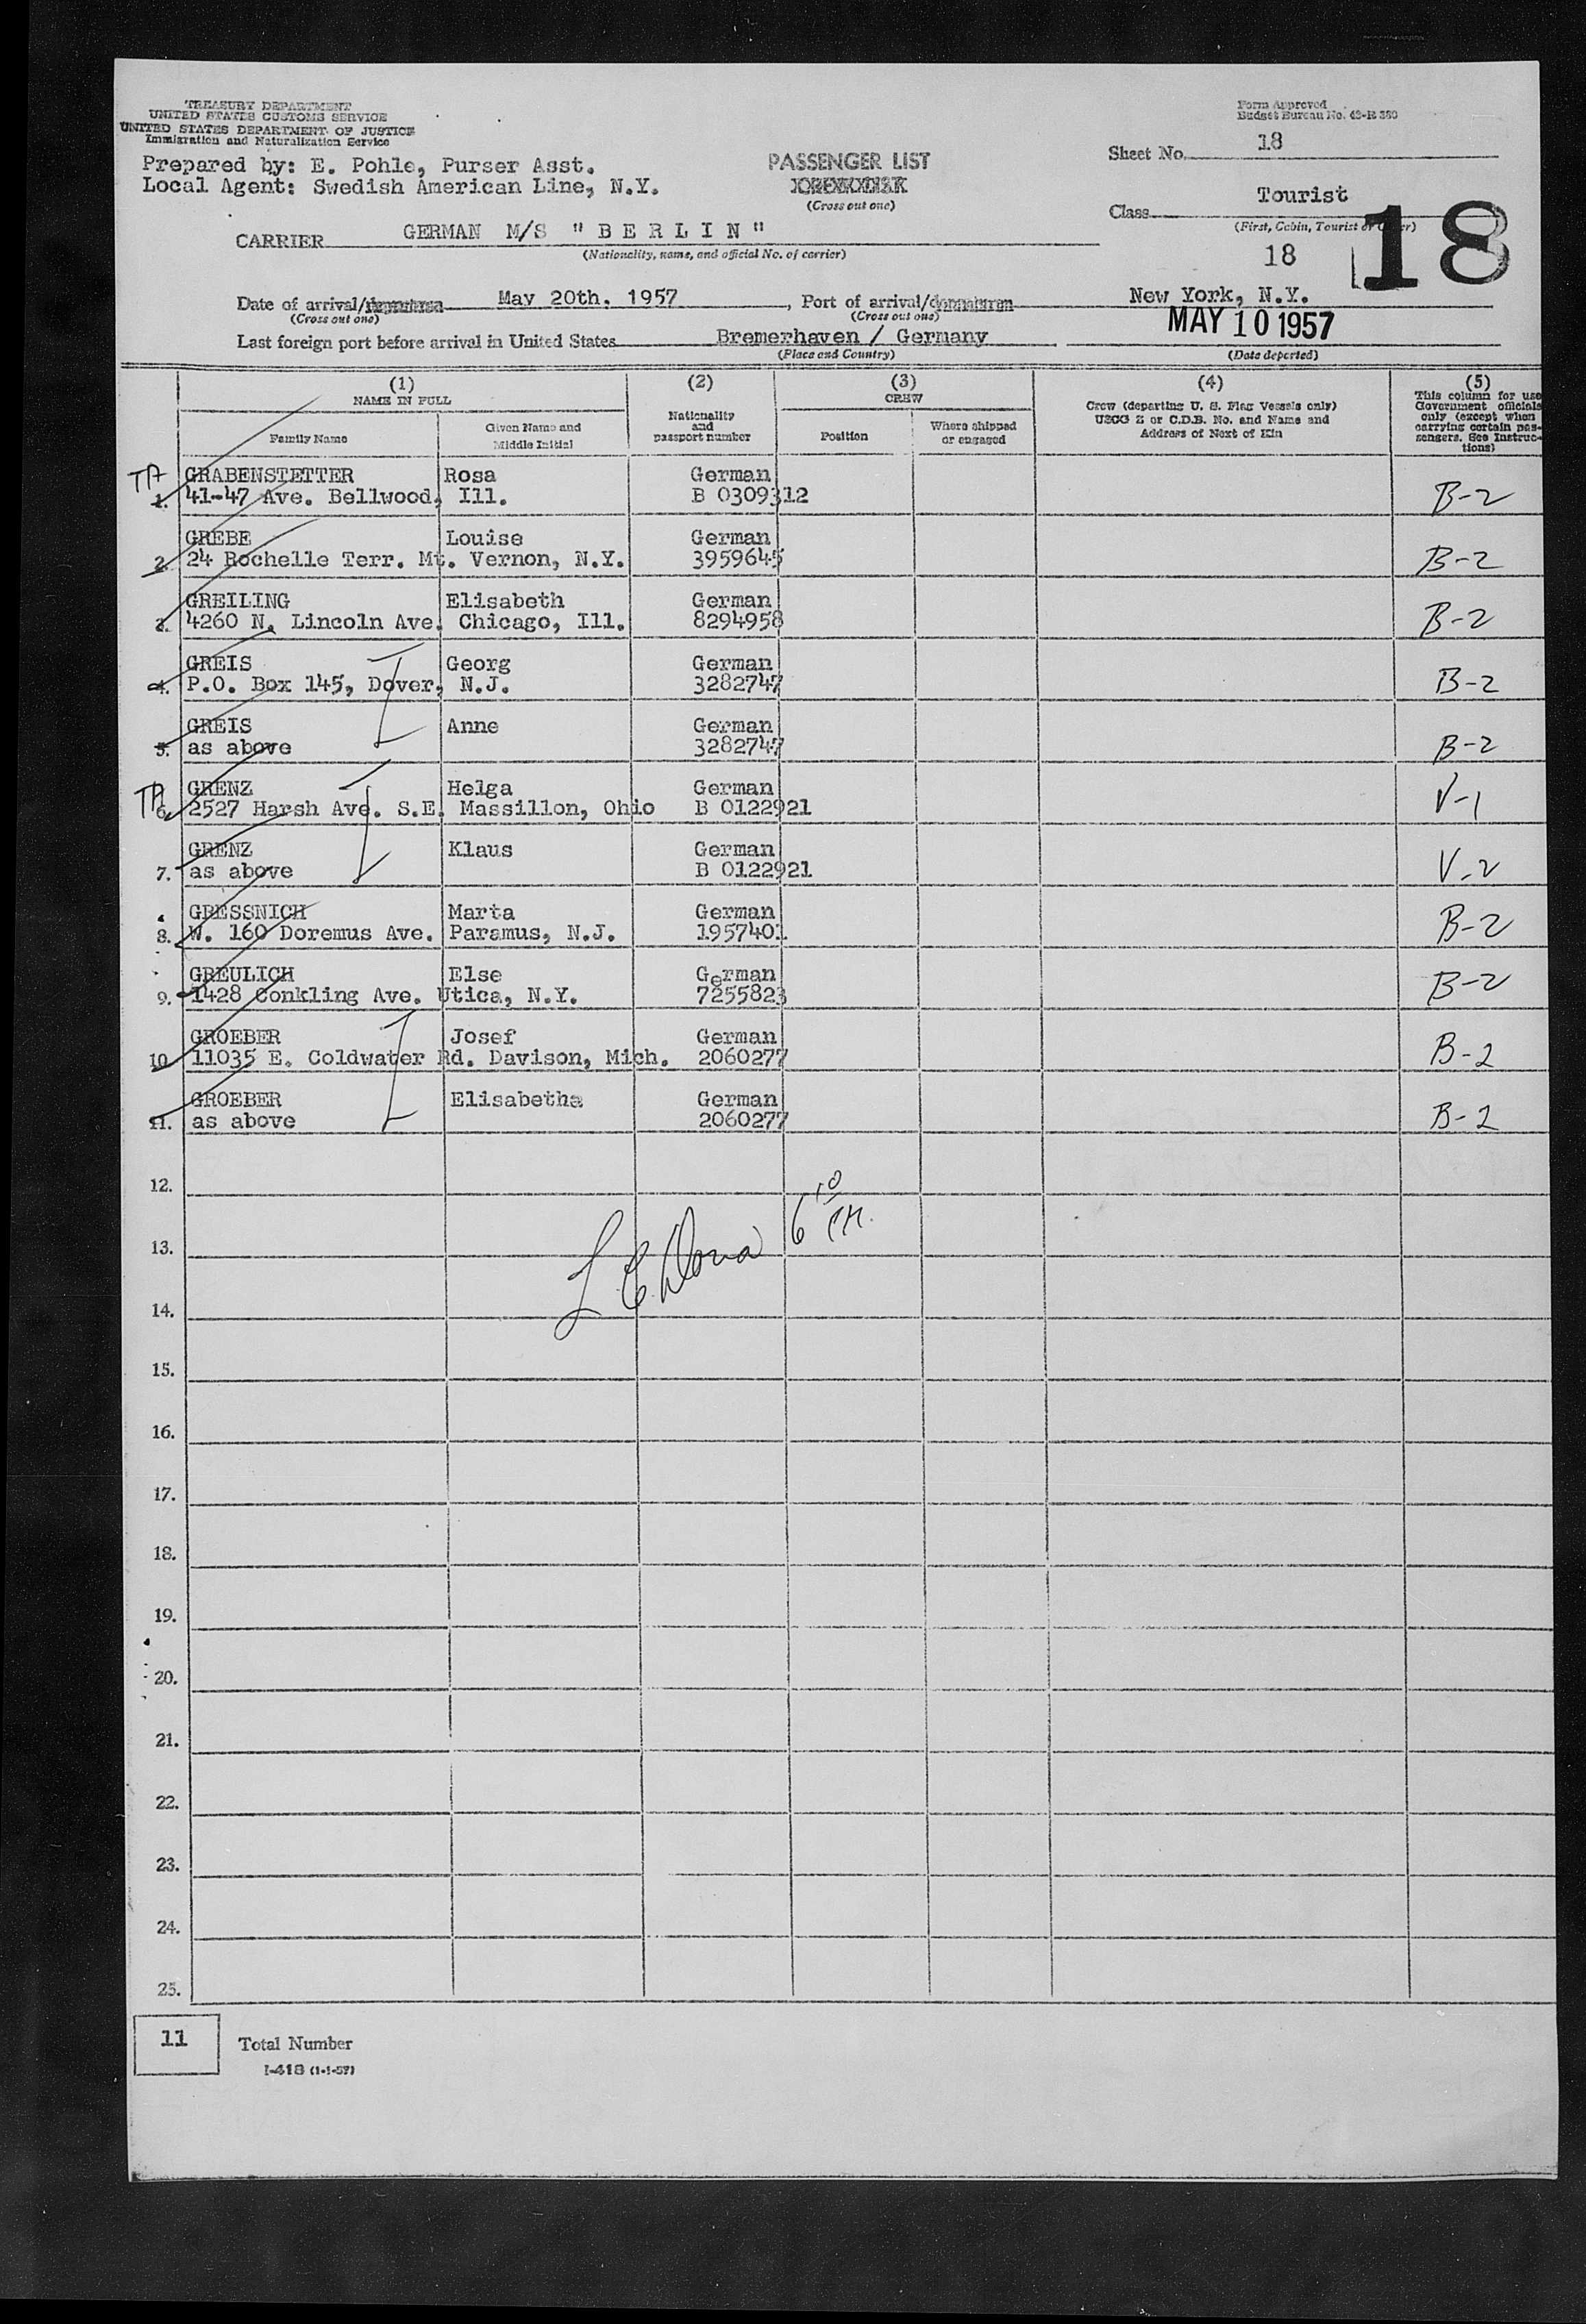 TREASURY DEPARTMENT
UNITED STATES CUSTOMS SERVICE
UNITED STATES DEPARTMENT OF JUSTICE
Immigration and Naturalization Service
Form Approved
Budget Bureau No. 43-R 380
Prepared by: E. Pohle, Purser Asst.
Local Agent: Swedish American Line, N.Y.
PASSENGER LIST
(Cross out one)
Sheet No. 18
Class Tourist
(First, Cabin, Tourist or Other)
18
18
CARRIER GERMAN M/S " B E R L I N "
(Nationality, name, and official No. of carrier)
Date of arrival/departure May 20th. 1957, Port of arrival/departure New York, N.Y.
(Cross out one) (Cross out one)
MAY 10 1957
Last foreign port before arrival in United States Bremerhaven / Germany
(Place and Country) (Date departed)
(1) (2) (3) (4) (5)
NAME IN FULL
Family Name
Given Name and Middle Initial
Nationality and passport number
CREW
Position
Where shipped or engaged
Crew (departing U. S. Flag Vessels only)
USCG Z or C.D.B. No. and Name and
Address of Next of Kin
This column for use
Government officials
only (except when
carrying certain pas-
sengers. See Instruc-
tions)
GRABENSTETTER Rosa German
1. 41-47 Ave. Bellwood, Ill. B 0309312 B-2
GREBE Louise German
2. 24 Rochelle Terr. Mt. Vernon, N.Y. 3959645 B-2
GREILING Elisabeth German
3. 4260 N. Lincoln Ave. Chicago, Ill. 8294958 B-2
GREIS Georg German
4. P.O. Box 145, Dover, N.J. 3282747 B-2
GREIS Anne German
5. as above 3282747 B-2
GRENZ Helga German
6. 2527 Harsh Ave. S.E. Massillon, Ohio B 0122921 V-1
GRENZ Klaus German
7. as above B 0122921 V-2
GRESSNICH Marta German
8. W. 160 Doremus Ave. Paramus, N.J. 1957401 B-2
GREULICH Else German
9. 1428 Conkling Ave. Utica, N.Y. 7255823 B-2
GROEBER Josef German
10. 11035 E. Coldwater Rd. Davison, Mich. 2060277 B-2
GROEBER Elisabetha German
11. as above 2060277 B-2
12.
13. 6 10 PM.
14.
15.
16.
17.
18.
19.
20.
21.
22.
23.
24.
25.
11 Total Number
I-418 (1-1-57)